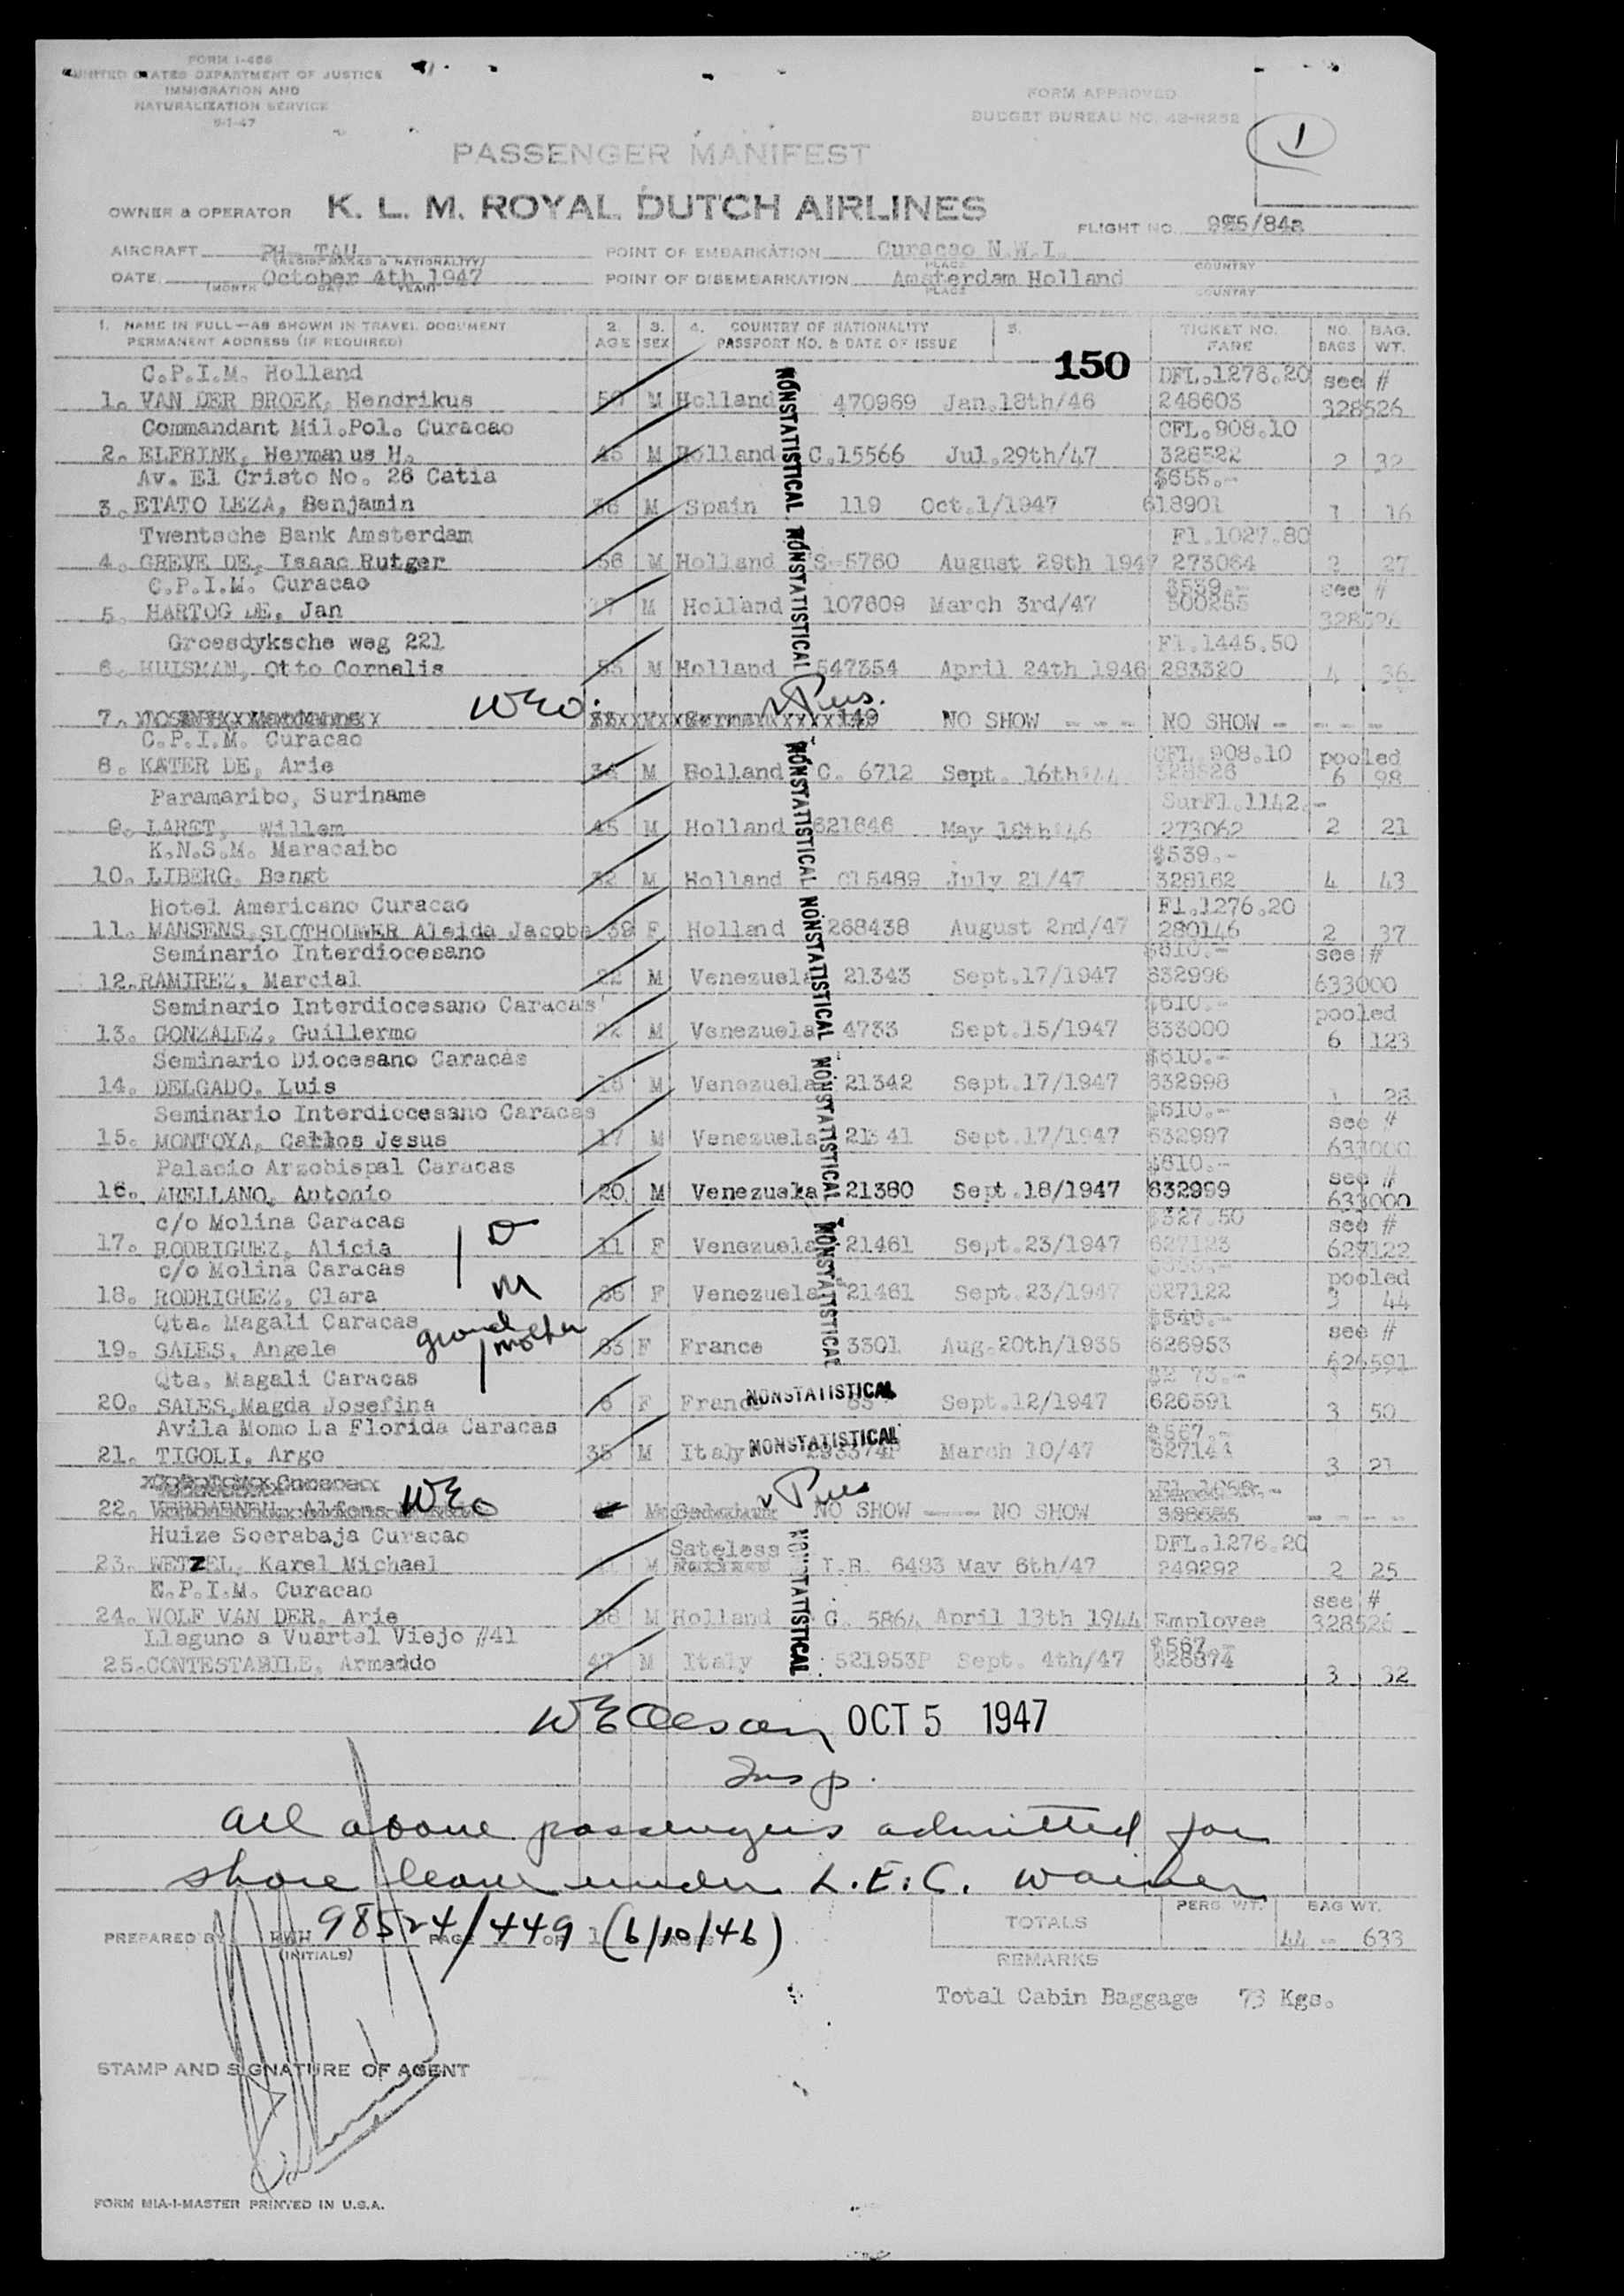 FORM I-466
UNITED STATES DEPARTMENT OF JUSTICE
IMMIGRATION AND
NATURALIZATION SERVICE
FORM APPROVED
BUDGET BUREAU NO. 43-R252
1
PASSENGER MANIFEST
OWNER & OPERATOR K. L. M. ROYAL DUTCH AIRLINES
FLIGHT NO. 985/84a
AIRCRAFT PH- TAU POINT OF EMBARKATION Curacao N.W.I.
(REGIS. MARKS & NATIONALITY) PLACE COUNTRY
DATE October 4th 1947 POINT OF DISEMBARKATION Amsterdam Holland
(MONTH DAY YEAR) PLACE COUNTRY
1. NAME IN FULL—AS SHOWN IN TRAVEL DOCUMENT 2. 3. 4. COUNTRY OF NATIONALITY 5. TICKET NO. NO. BAG.
PERMANENT ADDRESS (IF REQUIRED) AGE SEX PASSPORT NO. & DATE OF ISSUE FARE BAGS WT.
150
C.P.I.M. Holland DFL.1276.20 see #
1. VAN DER BROEK, Hendrikus M Holland 470969 Jan.18th/46 248603 328526
Commandant Mil.Pol. Curacao CFL.908.10
2. ELFRINK, Hermanus H. 45 M Holland C.15566 Jul.29th/47 328522 2 32
Av. El Cristo No. 26 Catia $655.-
3. ETATO LEZA, Benjamin 36 M Spain 119 Oct.1/1947 618901 1 16
Twentsche Bank Amsterdam Fl.1027.80
4. GREVE DE, Isaac Rutger 56 M Holland S-5760 August 29th 1947 273064 2 27
C.P.I.M. Curacao $539.- see #
5. HARTOG DE, Jan M Holland 107609 March 3rd/47 500255 328526
Groesdyksche weg 221 Fl.1445.50
6. HUISMAN, Otto Cornalis 53 M Holland 547354 April 24th 1946 283320 4 36
WEO. Pres.
7. 149 NO SHOW - - - NO SHOW - - - -
C.P.I.M. Curacao CFL.908.10 pooled
8. KATER DE, Arie 34 M Holland C. 6712 Sept. 16th 44 328526 6 98
Paramaribo, Suriname SurFl.1142.-
9. LARET, Willem 45 M Holland 621646 May 18th 46 273062 2 21
K.N.S.M. Maracaibo $539.-
10. LIBERG, Bengt 32 M Holland C15489 July 21/47 328162 4 43
Hotel Americano Curacao Fl.1276.20
11. MANSENS,SLOTHOUWER Aleida Jacoba 39 F Holland 268438 August 2nd/47 280146 2 37
Seminario Interdiocesano $610.- see #
12.RAMIREZ, Marcial 22 M Venezuela 21343 Sept.17/1947 632996 633000
Seminario Interdiocesano Caracas $610.- pooled
13. GONZALEZ, Guillermo 22 M Venezuela 4733 Sept.15/1947 633000 6 123
Seminario Diocesano Caracas $610.-
14. DELGADO, Luis 18 M Venezuela 21342 Sept.17/1947 632998 1 28
Seminario Interdiocesano Caracas $610.- see #
15. MONTOYA, Carlos Jesus 17 M Venezuela 21341 Sept.17/1947 632997 633000
Palacio Arzobispal Caracas $610.- see #
16. ARELLANO, Antonio 20 M Venezuela 21380 Sept.18/1947 632999 633000
c/o Molina Caracas $327.50 see #
17. RODRIGUEZ, Alicia D 11 F Venezuela 21461 Sept.23/1947 627123 627122
c/o Molina Caracas pooled
18. RODRIGUEZ, Clara M 66 F Venezuela 21461 Sept.23/1947 627122 3 44
Qta. Magali Caracas $546.- see #
19. SALES, Angele grand mother 63 F France 3301 Aug.20th/1935 626953 626591
Qta. Magali Caracas $273.-
20. SALES,Magda Josefina 6 F France Sept.12/1947 626591 3 50
Avila Momo La Florida Caracas $567.-
21. TIGOLI, Argo 35 M Italy 293374P March 10/47 627144 3 21
WEO Pres
22. NO SHOW --- NO SHOW - - - -
Huize Soerabaja Curaçao Sateless DFL.1276.20
23. WETZEL, Karel Michael M I.B. 6483 May 6th/47 249292 2 25
E.P.I.M. Curacao see #
24. WOLF VAN DER, Arie 38 M Holland C. 5864 April 13th 1944 Employee 328526
Llaguno a Vuartel Viejo #41 $567.-
25.CONTESTABILE, Armaddo 47 M Italy 521953P Sept. 4th/47 628874 3 32
NONSTATISTICAL NONSTATISTICAL NONSTATISTICAL NONSTATISTICAL NONSTATISTICAL NONSTATISTICAL
NONSTATISTICAL
NONSTATISTICAL
NONSTATISTICAL
OCT 5 1947
Insp.
all above passengers admitted for
shore leave under L.E.C. waiver
98524/449 (6/10/46)
PREPARED BY (INITIALS) PAGE OF 1 PAGES
TOTALS PERS. WT. BAG WT.
44 - 633
REMARKS
Total Cabin Baggage 73 Kgs.
STAMP AND SIGNATURE OF AGENT
FORM MIA-I-MASTER PRINTED IN U.S.A.